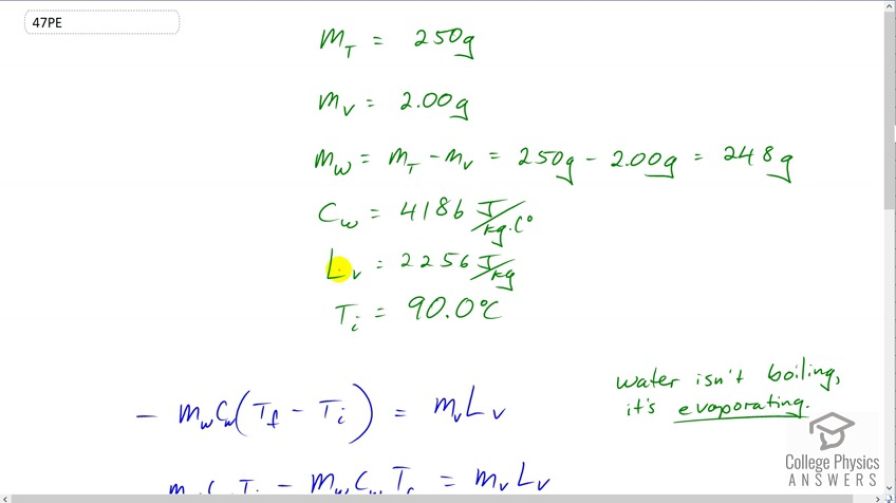 47PE
m_T = 250g
m_v = 2.00g
m_w = m_T - m_v = 250g - 2.00g = 248g
C_w = 4186 J/kg·C°
L_v = 2256 J/kg
T_i = 90.0°C
water isn't boiling,
it's evaporating.
- m_w C_w (T_f - T_i) = m_v L_v
m_w C_w T_i - m_w C_w T_f = m_v L_v
College Physics
ANSWERS